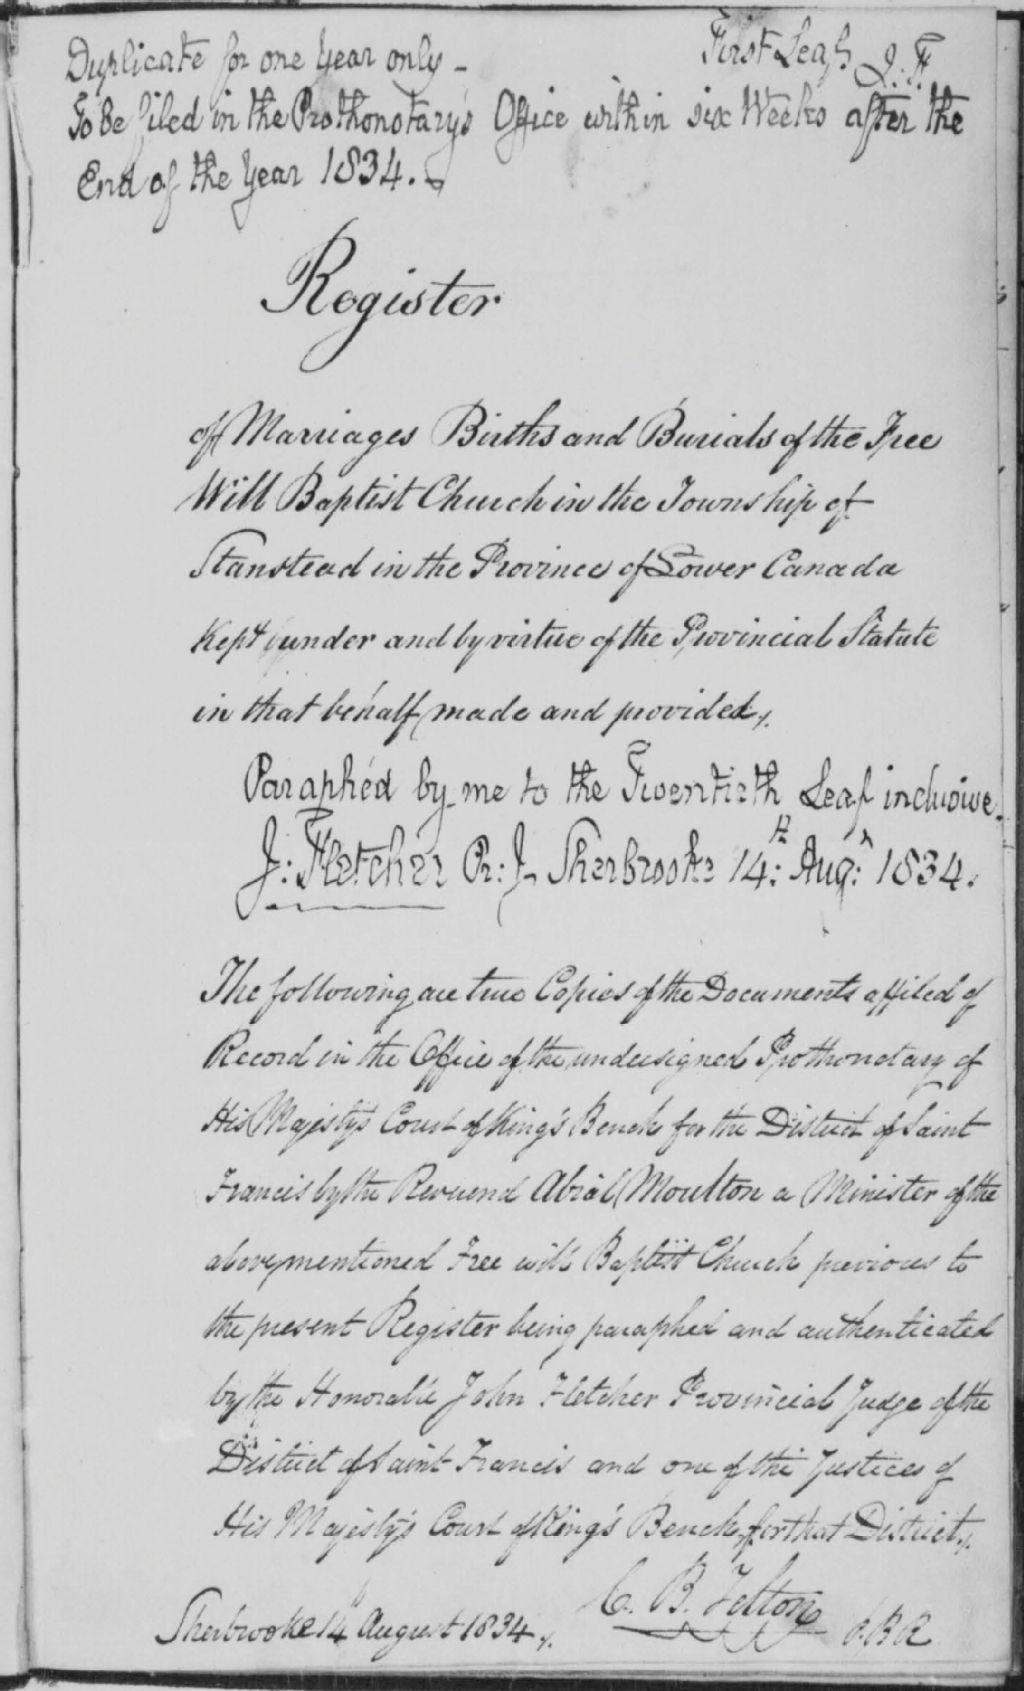 Duplicate for one Year only - First Leaf J: F.
To Be filed in the Prothonotary's Office within six Weeks after the
End of the Year 1834.
Register
of Marriages Births and Burials of the Free
Will Baptist Church in the Township of
Stanstead in the Province of Lower Canada
Kept under and by virtue of the Provincial Statute
in that behalf made and provided,.
Paraphéd by me to the Twentieth Leaf inclusive.
J: Fletcher Pr: J- Sherbrooke 14: Aug: 1834.
The following are true Copies of the Documents affiled of
Record in the Office of the undersigned Prothonotary of
His Majesty's Court of King's Bench for the District of Saint
Francis by the Reverend Abial Moulton a Minister of the
above mentioned Free will Baptist Church previous to
the present Register being paraphed and authenticated
by the Honorable John Fletcher Provincial Judge of the
District of Saint Francis and one of the Justices of
His Majesty's Court of King's Bench for that District,.
Sherbrooke 14 August 1834,. C. B. Felton